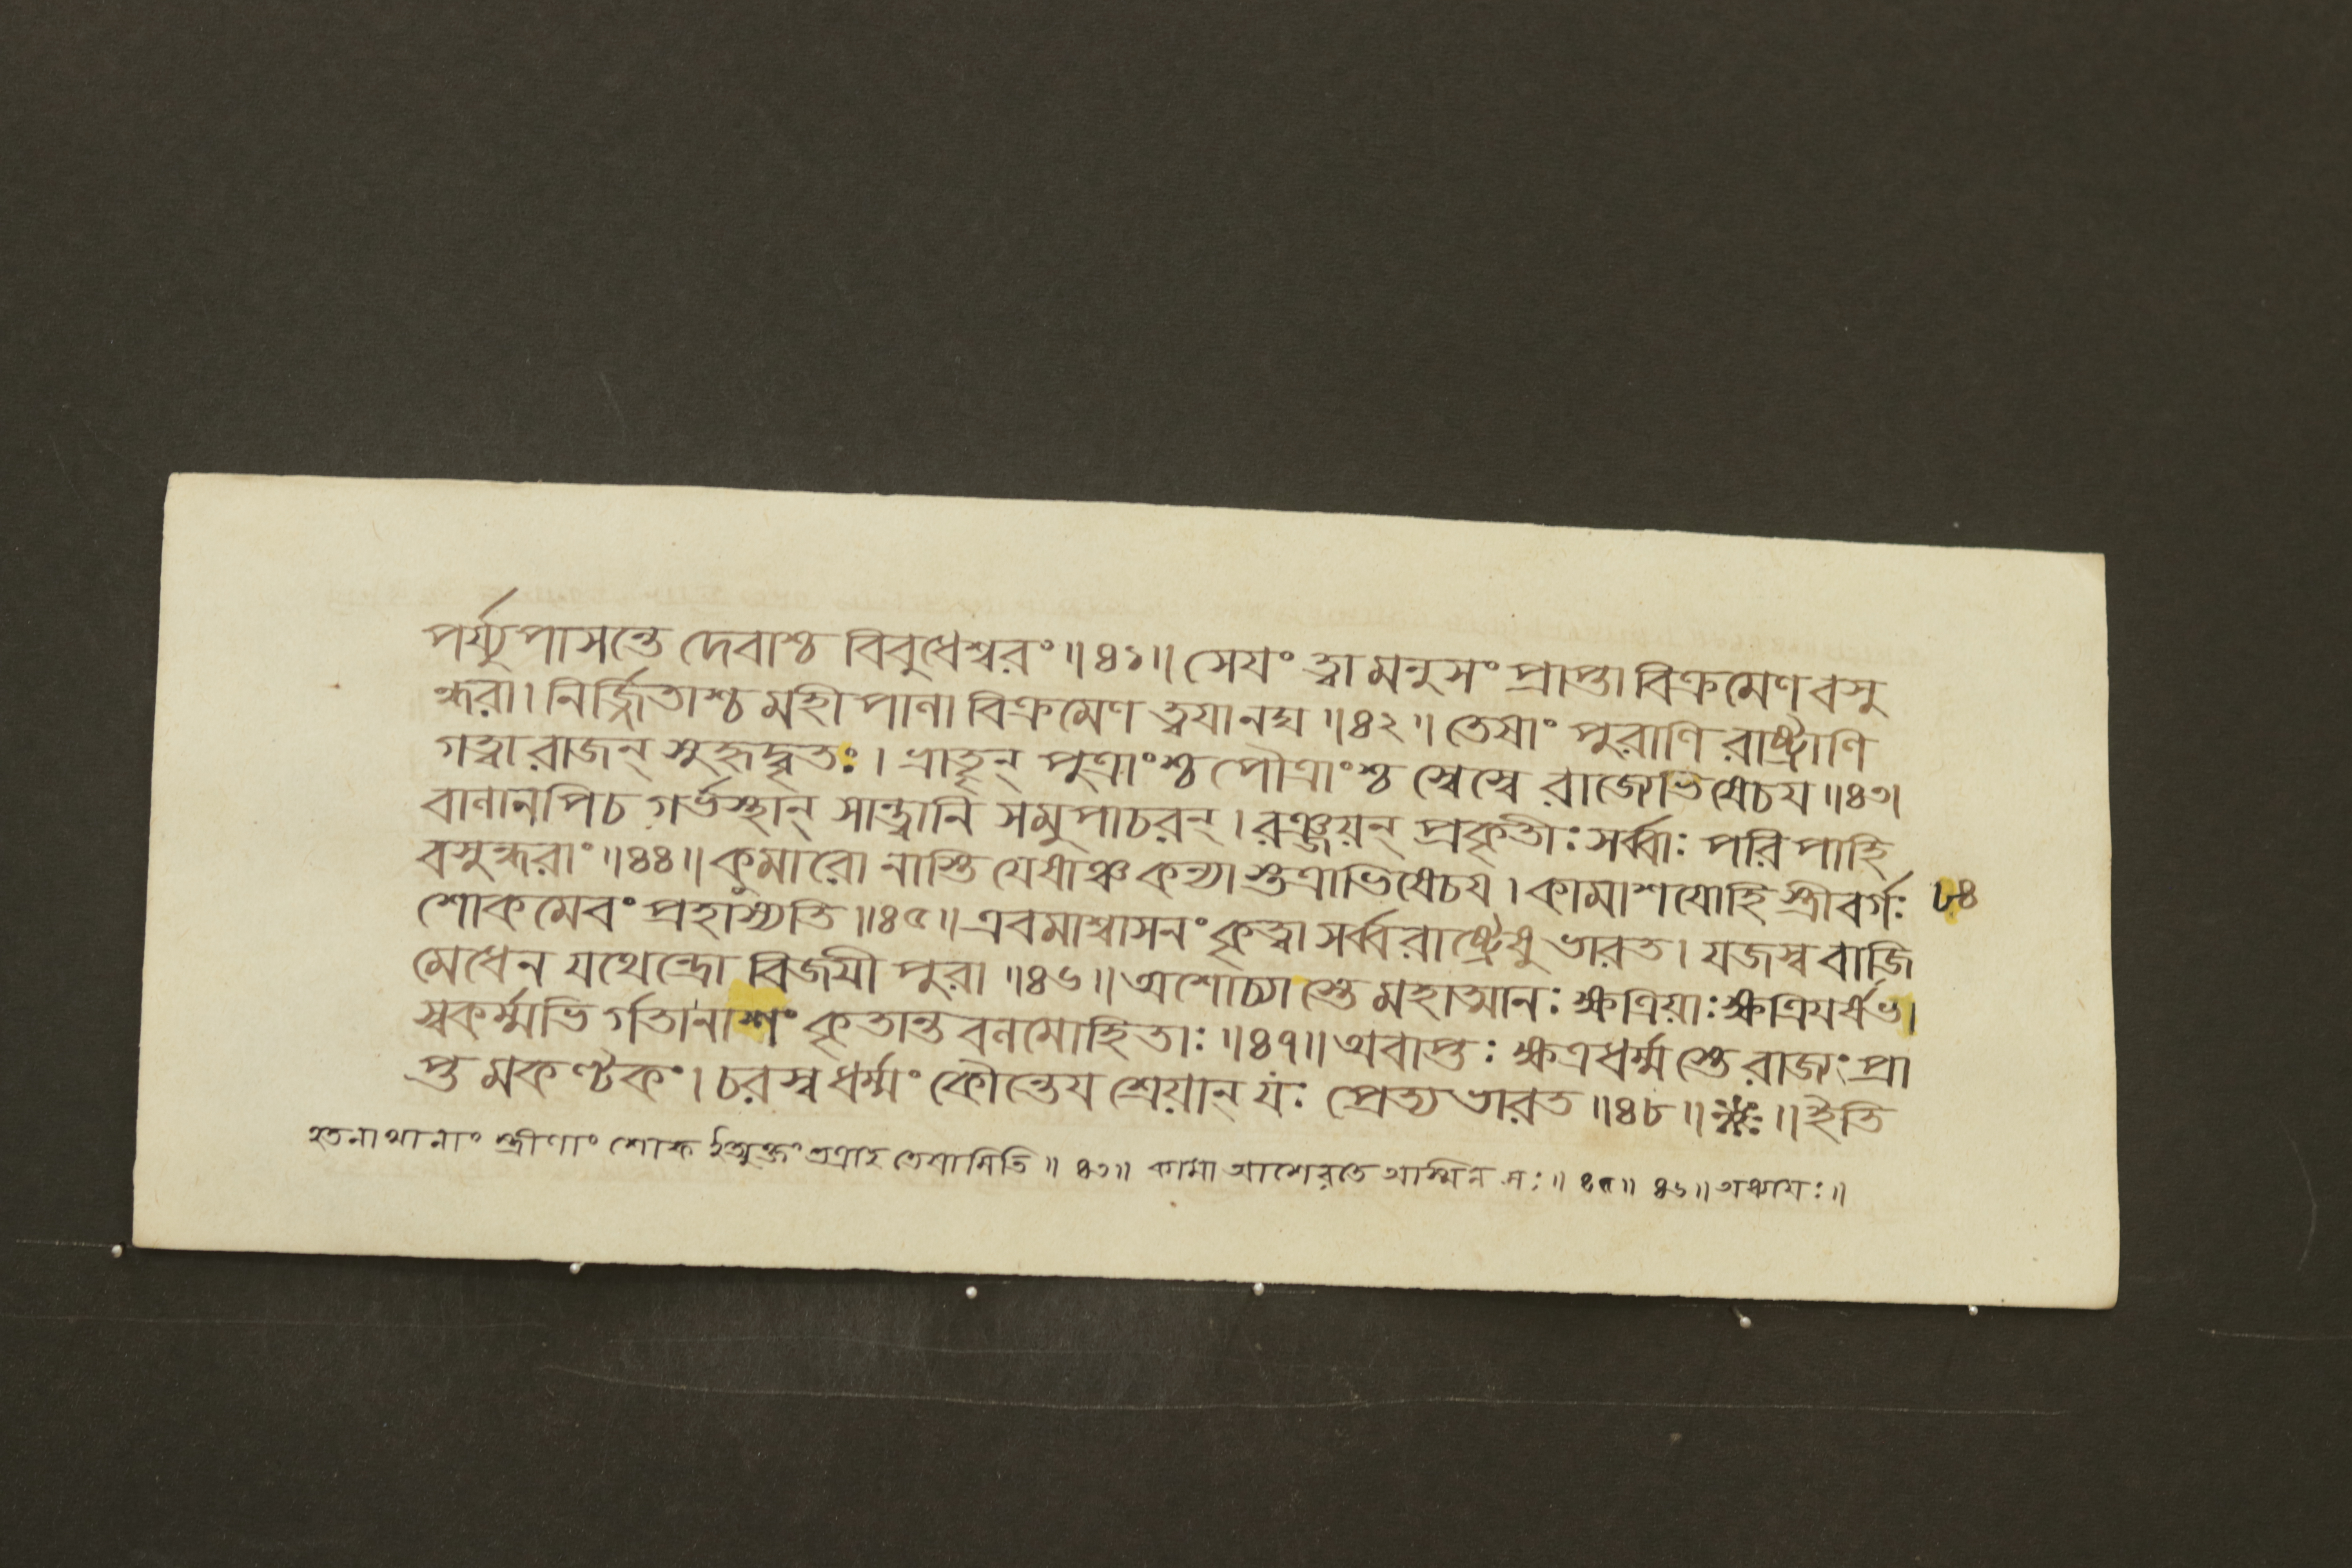 পর্য্যুপাসন্তে দেবাশ্চ বিবুধেশ্বরং ॥ ৪১ ॥ সেযং ত্বামনুসংপ্রাপ্তা বিক্রমেণ বসু
ন্ধরা । নির্জ্জিতাশ্চ মহীপাণা বিক্রমেণ ত্বযানঘ ॥ ৪২ ॥ তেষাং পুরাণি রাষ্ট্রাণি
গত্বা রাজন্ সুহৃদ্বৃতঃ । ভ্রাতৄন্ পুত্রাংশ্চ পৌত্রাংশ্চ স্বেস্বে রাজ্যেভিষেচয ॥ ৪৩ ।
বাণানপিচ গর্ভস্থান্ সান্ত্বানি সমুপাচরন্ । রঞ্জয়ন্ প্রকৃতীঃ সর্ব্বাঃ পরিপাহি
বসুন্ধরাং ॥ ৪৪ ॥ কুমারো নাস্তি যেষাঞ্চ কন্যাস্তত্রাভিষেচয । কামাশযোহি স্ত্রীবর্গঃ
৮৪
শোকমেবং প্রহাস্যতি ॥ ৪৫ ॥ এবমাশ্বাসনং কৃত্বা সর্ব্বরাষ্ট্রেষু ভারত । যজস্ব বাজি
মেধেন যথেন্দ্রো বিজযী পুরা ॥ ৪৬ ॥ অশোচ্যাস্তে মহাত্মানঃ ক্ষত্রিয়াঃ ক্ষত্রিযর্ষভ ।
স্বকর্ম্মভির্গতানাশং কৃতান্তবনমোহিতাঃ ॥ ৪৭ ॥ অবাপ্তঃ ক্ষত্রধর্ম্মস্তে রাজ্যং প্রা
প্তমকণ্টকং । চরস্ব ধর্ম্মং কৌন্তেয শ্রেয়ান্ যঃ প্রেত্য ভারত ॥ ৪৮ ॥ ※ ॥ ইতি
হতনাথানাং স্ত্রীণাং শোক তত্রাহ তেষামিতি ॥ ৪৩ ॥ কামা আশেরতে অস্মিন্ সঃ ॥ ৪৫ ॥ ৪৬ ॥